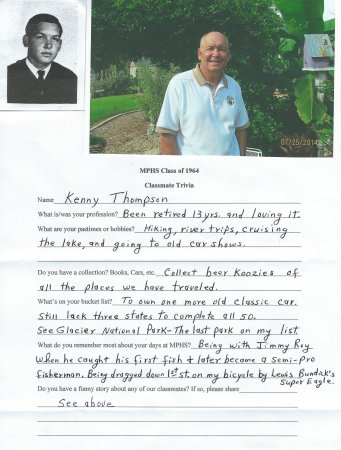 07/25/2014
MPHS Class of 1964
Classmate Trivia
Name Kenny Thompson
What is/was your profession? Been retired 13 yrs. and loving it.
What are your pastimes or hobbies? Hiking, river trips, cruising
the lake, and going to old car shows.
Do you have a collection? Books, Cars, etc. Collect beer Koozies of
all the places we have traveled.
What's on your bucket list? To own one more old classic car.
Still lack three states to complete all 50.
See Glacier National Park-The last park on my list
What do you remember most about your days at MPHS? Being with Jimmy Roy
when he caught his first fish & later became a semi-pro
fisherman. Being dragged down 1st st. on my bicycle by Lewis Bundick's
Super Eagle.
Do you have a funny story about any of our classmates? If so, please share
See above